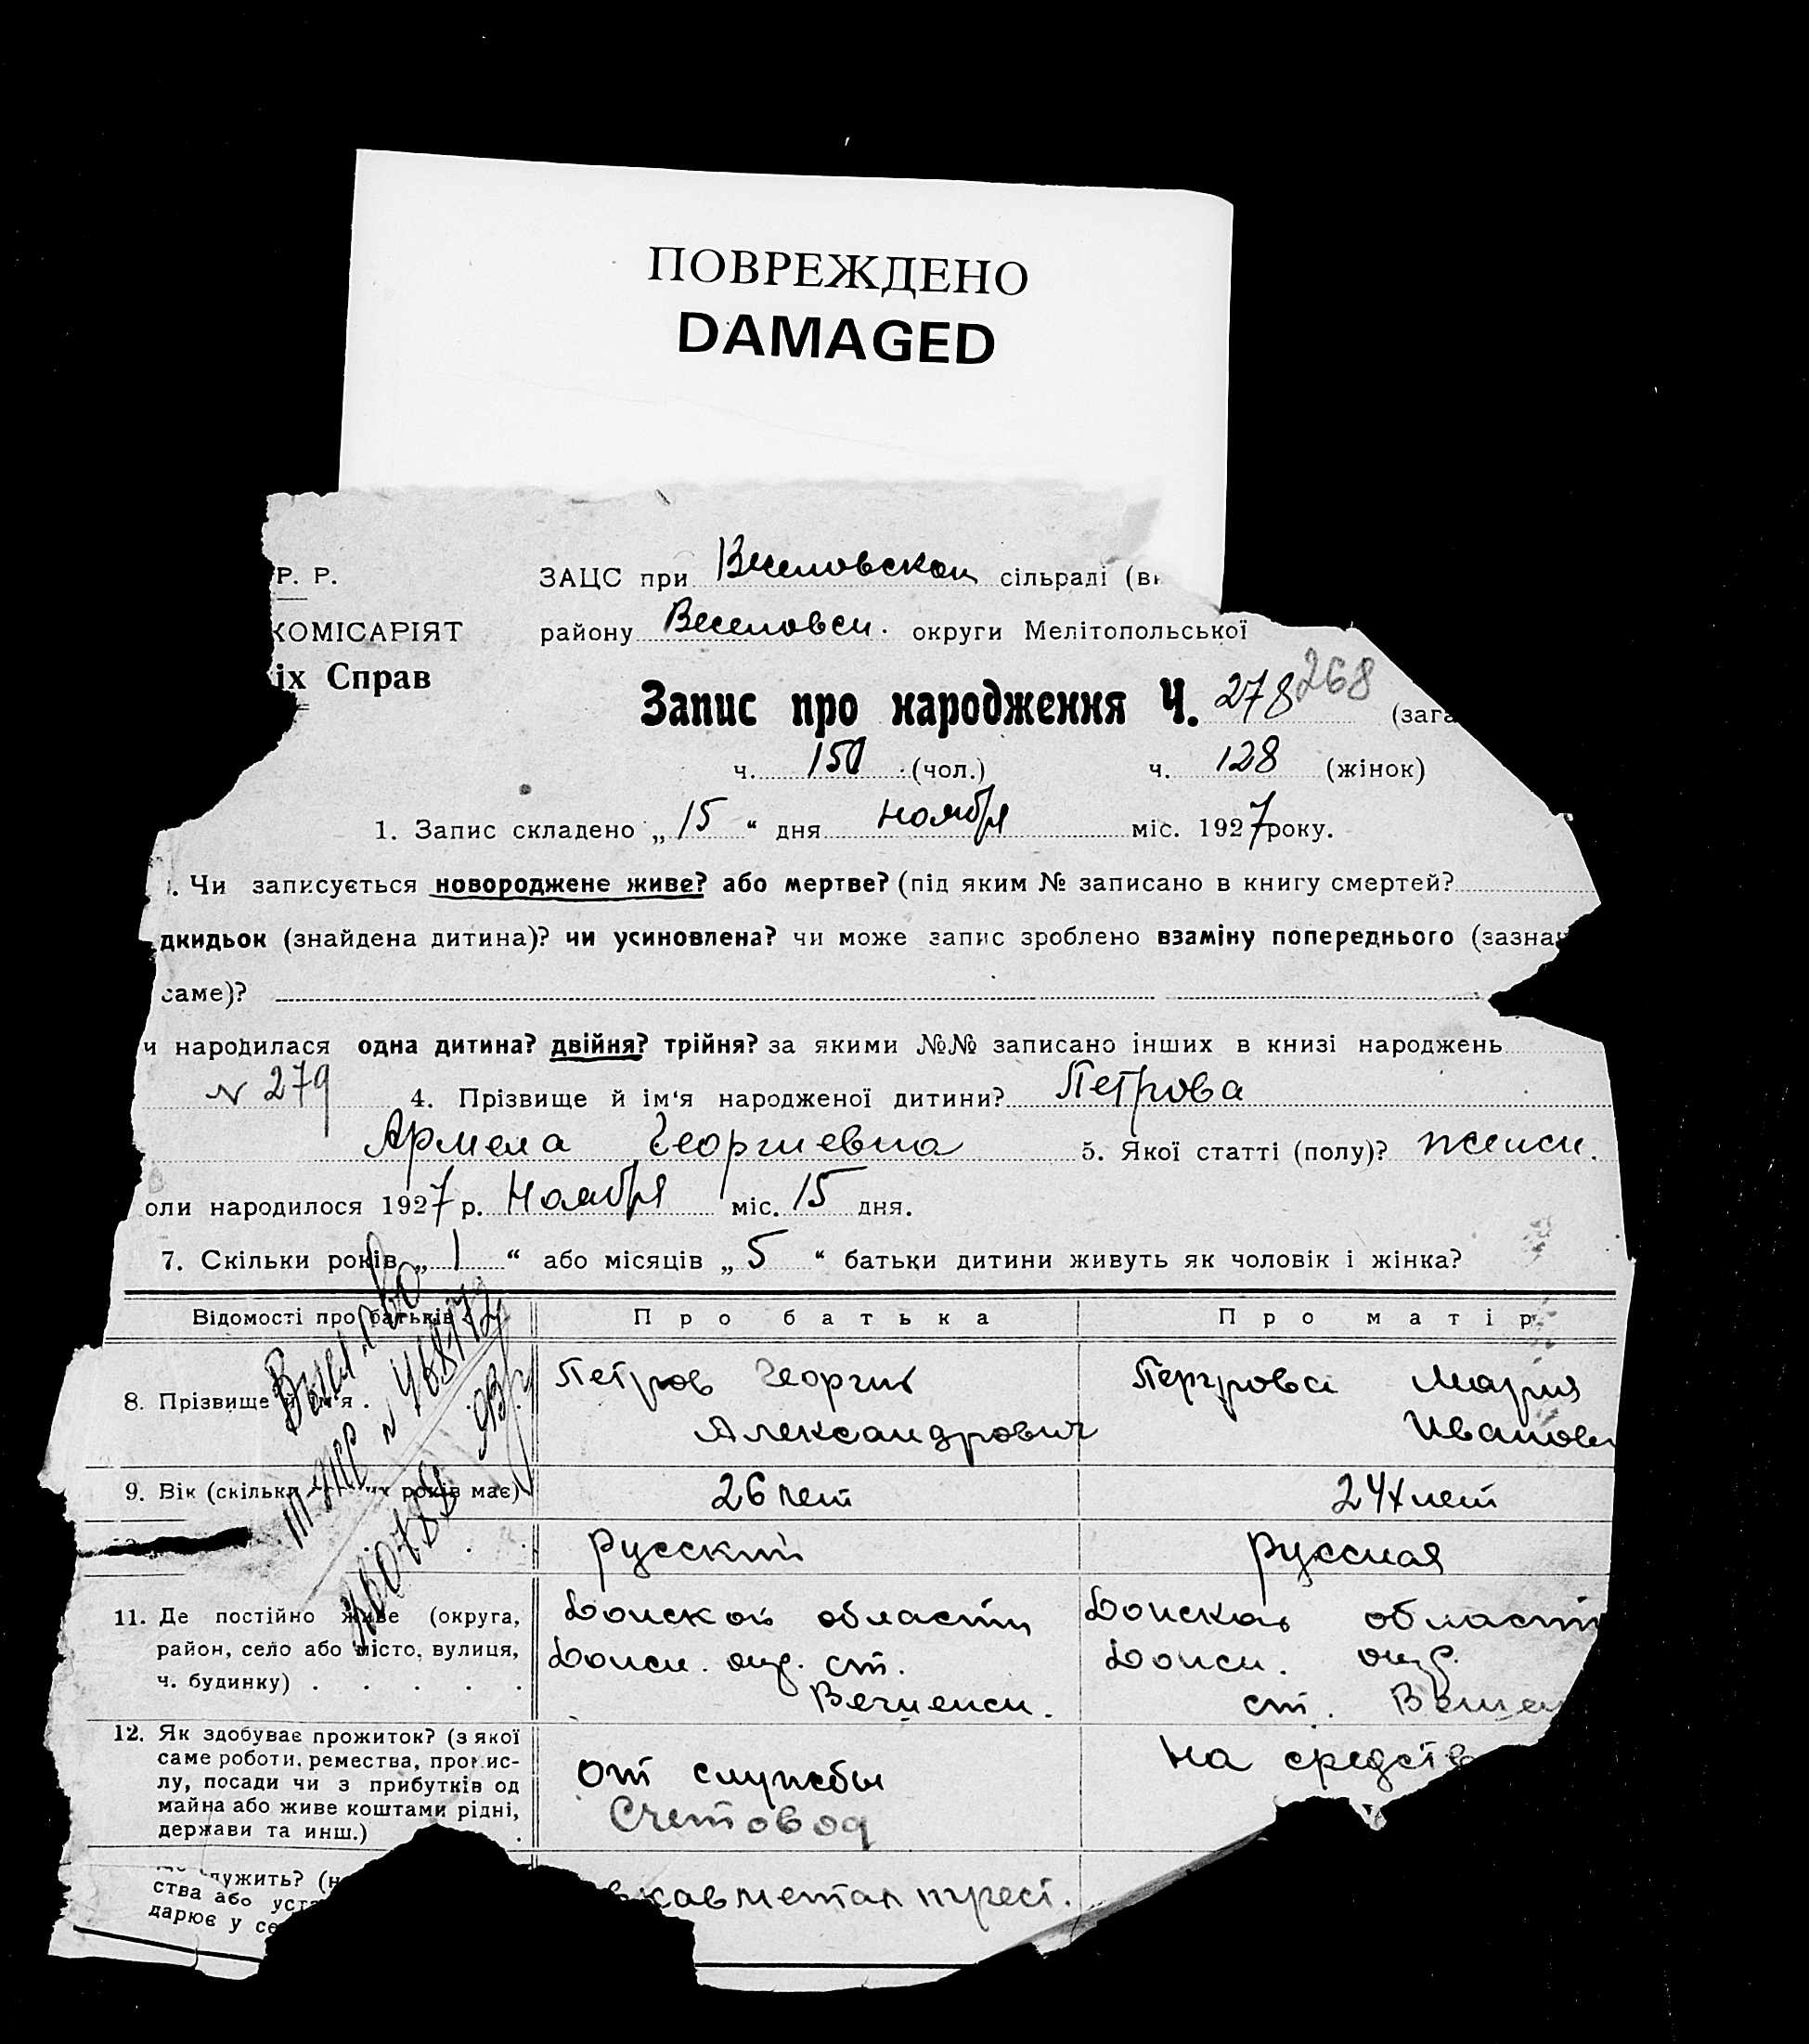 ПОВРЕЖДЕНО
DAMAGED
Р. Р.
ЗАЦС при Веселовской сільраді (ви
КОМІСАРІЯТ
району Веселовск. округи Мелітопольської
іх Справ
Запис про народження Ч. 278 268 (зага
ч. 150 (чол.) ч. 128 (жінок)
1. Запис складено „ 15 “ дня ноября міс. 1927 року.
. Чи записується новороджене живе? або мертве? (під яким № записано в книгу смертей?
дкидьок (знайдена дитина)? чи усиновлена? чи може запис зроблено взаміну попереднього (зазнач
саме)?
и народилася одна дитина? двійня? трійня? за якими №№ записано інших в книзі народжень
N 279 4. Прізвище й ім‘я народженої дитини? Петрова
Армела Георгиевна 5. Якої статті (полу)? женск.
оли народилося 1927 р. Ноября міс. 15 дня.
7. Скільки років „ 1 “ або місяців „ 5 “ батьки дитини живуть як чоловік і жінка?
Відомості про батьків Про батька Про матір
8. Прізвище й ім‘я . Петров Георгий Петрова Мария
Александрович Иванов
9. Вік (скільки років має) 26 лет 24 лет
русский русская
11. Де постійно живе (округа, Донской области Донской област
район, село або місто, вулиця, Донск. окр. ст. Донск. окр.
ч. будинку) . . . . . Вешенск. ст. Вешен
12. Як здобуває прожиток? (з якої
саме роботи, ремества, промис-
лу, посади чи з прибутків од
майна або живе коштами рідні,
держави та инш.)
от службы На средств
Счетовод
лужить? (н
ства або уста
дарює у се
вкавметалтрест.